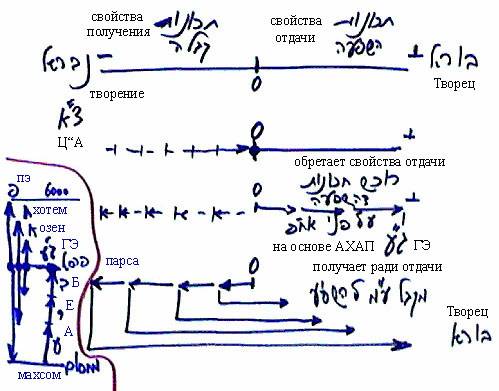 свойства получения תכונות קבלה свойства отдачи תכונות השפעה
נברא − + בורא
творение 0 Творец
Ц“А 0 +
обретает свойства отдачи
רוכש תכונות
דהשפעה
0 +
על פני אחפ
на основе АХАП ג"ע ГЭ
פ пэ 6000
хотем
озен
ГЭ ג"ע
פרסא парса 0
получает ради отдачи
מקבל ע"מ להשפיע
Б
Е
А
Творец
בורא
махсом מחסום